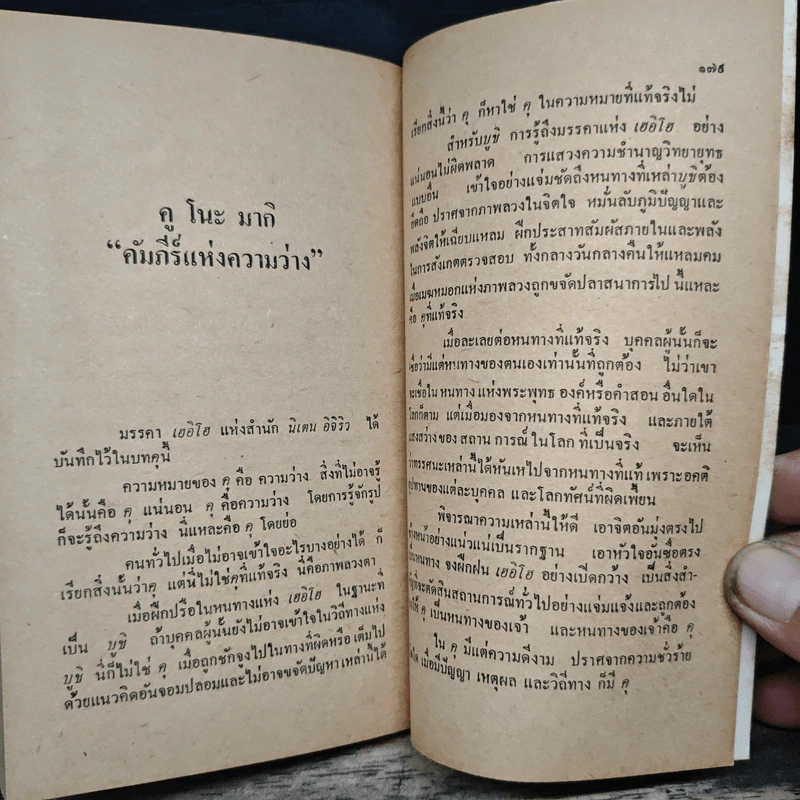 คู โนะ มากิ
“คัมภีร์แห่งความว่าง”
มรรคา เฮอิโฮ แห่งสำนัก นิเตน อิจิริว ได้
บันทึกไว้ในบทคุนี้
ความหมายของ คุ คือ ความว่าง สิ่งที่ไม่อาจรู้
ได้นั้นคือ คุ แน่นอน คุ คือความว่าง โดยการรู้จักรูป
ก็จะรู้ถึงความว่าง นี่แหละคือ คุ โดยย่อ
คนทั่วไปเมื่อไม่อาจเข้าใจอะไรบางอย่างได้ ก็
เรียกสิ่งนั้นว่าคุ แต่นี่ไม่ใช่คุที่แท้จริง นี่คือภาพลวงตา
เมื่อฝึกปรือในหนทางแห่ง เฮอิโฮ ในฐานะที่
เป็น บูชิ ถ้าบุคคลผู้นั้นยังไม่อาจเข้าใจในวิถีทางแห่ง
บูชิ นี่ก็ไม่ใช่ คุ เมื่อถูกชักจูงไปในทางที่ผิดหรือ เต็มไป
ด้วยแนวคิดอันจอมปลอมและไม่อาจขจัดปัญหา เหล่านี้ได้
๑๗๕
เรียกสิ่งนี้ว่า คุ ก็หาใช่ คุ ในความหมายที่แท้จริงไม่
สำหรับบูชิ การรู้ถึงมรรคาแห่ง เฮอิโฮ อย่าง
แน่นอนไม่ผิดพลาด การแสวงความชำนาญวิทยายุทธ
แบบอื่น เข้าใจอย่างแจ่มชัดถึงหนทางที่เหล่าบูชิต้อง
ยึดถือ ปราศจากภาพลวงในจิตใจ หมั่นลับภูมิปัญญาและ
พลังจิตให้เฉียบแหลม ฝึกประสาทสัมผัสภายในและพลัง
ในการสังเกตตรวจสอบ ทั้งกลางวันกลางคืนให้แหลมคม
เมื่อเมฆหมอกแห่งภาพลวงถูกขจัดปลาสนาการไป นี้แหละ
คือ คุที่แท้จริง
เมื่อละเลยต่อหนทางที่แท้จริง บุคคลผู้นั้นก็จะ
เชื่อว่ามีแต่หนทางของตนเองเท่านั้นที่ถูกต้อง ไม่ว่าเขา
จะเชื่อใน หนทาง แห่งพระพุทธ องค์หรือคำสอน อื่นใดใน
โลกก็ตาม แต่เมื่อมองจากหนทางที่แท้จริง และภายใต้
แสงสว่างของ สถาน การณ์ ในโลก ที่เป็นจริง จะเห็น
ว่าทรรศนะเหล่านี้ได้หันเหไปจากหนทางที่แท้ เพราะอคติ
อุปาทานของแต่ละบุคคล และโลกทัศน์ที่ผิดเพี้ยน
พิจารณาความเหล่านี้ให้ดี เอาจิตอันมุ่งตรงไป
ข้างหน้าอย่างแน่วแน่เป็นรากฐาน เอาหัวใจอันซื่อตรง
เป็นหนทาง จงฝึกฝน เฮอิโฮ อย่างเปิดกว้าง เป็นสิ่งสำ-
ที่จะตัดสินสถานการณ์ทั่วไปอย่างแจ่มแจ้งและถูกต้อง
ให้ คุ เป็นหนทางของเจ้า และหนทางของเจ้าคือ คุ
ใน คุ มีแต่ความดีงาม ปราศจากความชั่วร้าย
ใด เมื่อมีปัญญา เหตุผล และวิถีทาง ก็มี คุ